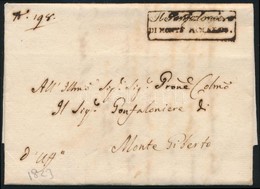 N. 198.
Il Gonfaloniere
DI MONTE
All' Illmo Sig. Sig. Prone Colmo
Il Sig. Gonfaloniere di
d' Uff.o
Monte di Verto
1823